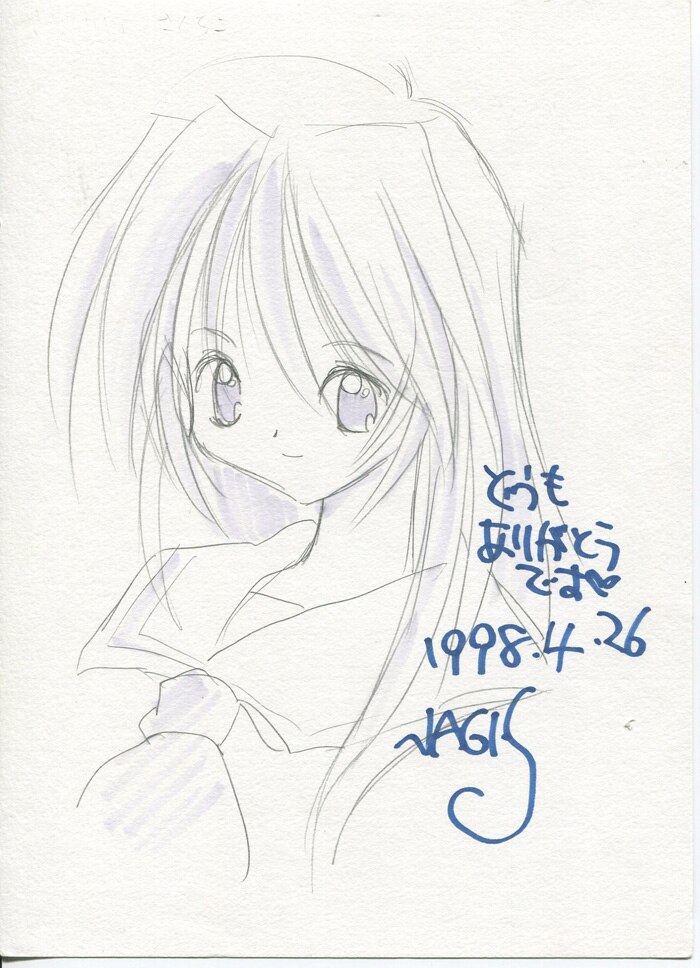 どうも
ありがとう
です♥
1998.4.26